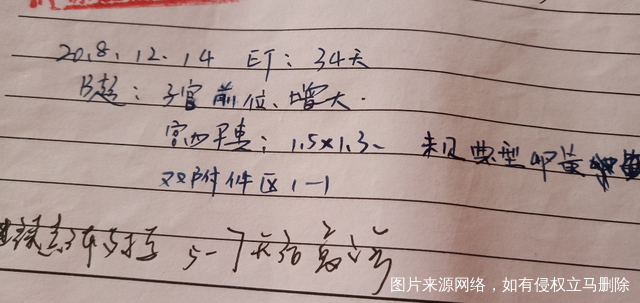 20.8.12.14 ET: 34天
B超: 子宫前位、增大.
宫内孕囊: 1.5×1.3、 未见典型卵黄
双附件区(-)
5-7天后复诊
图片来源网络，如有侵权立马删除